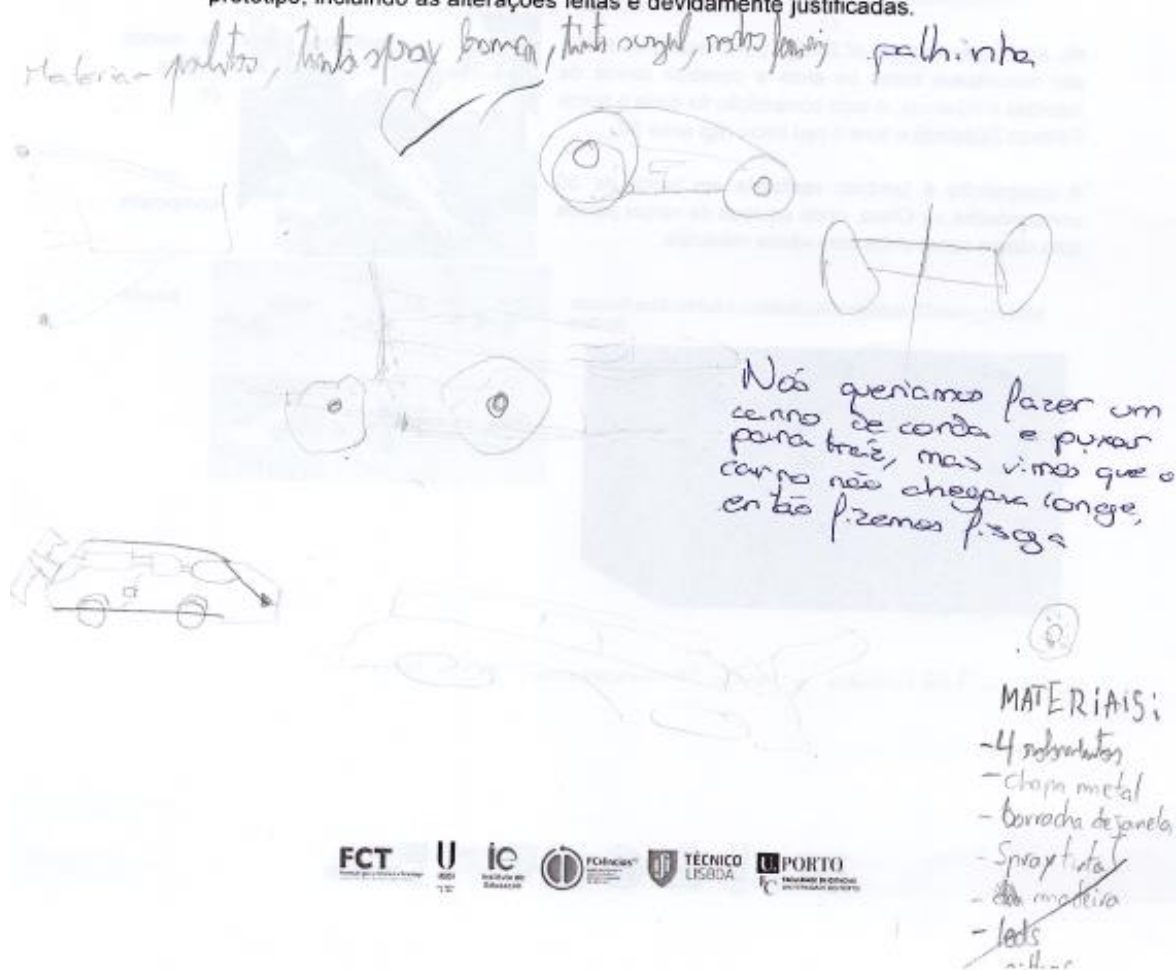 protótipo, incluindo as alterações feitas e devidamente justificadas.
palitos, tinta spray, tinta palhinha
Nós queriamos fazer um
carro de corda e puxar
para traz, mas vimos que o
carro não chegava longe,
então fizemos fisga
MATERIAIS:
-4
- Chapa metal
- Borracha de janela
- Spray tinta
- madeira
- leds
FCT
U
ie
Instituto de
Educação
TÉCNICO
LISBOA
U.PORTO
FC